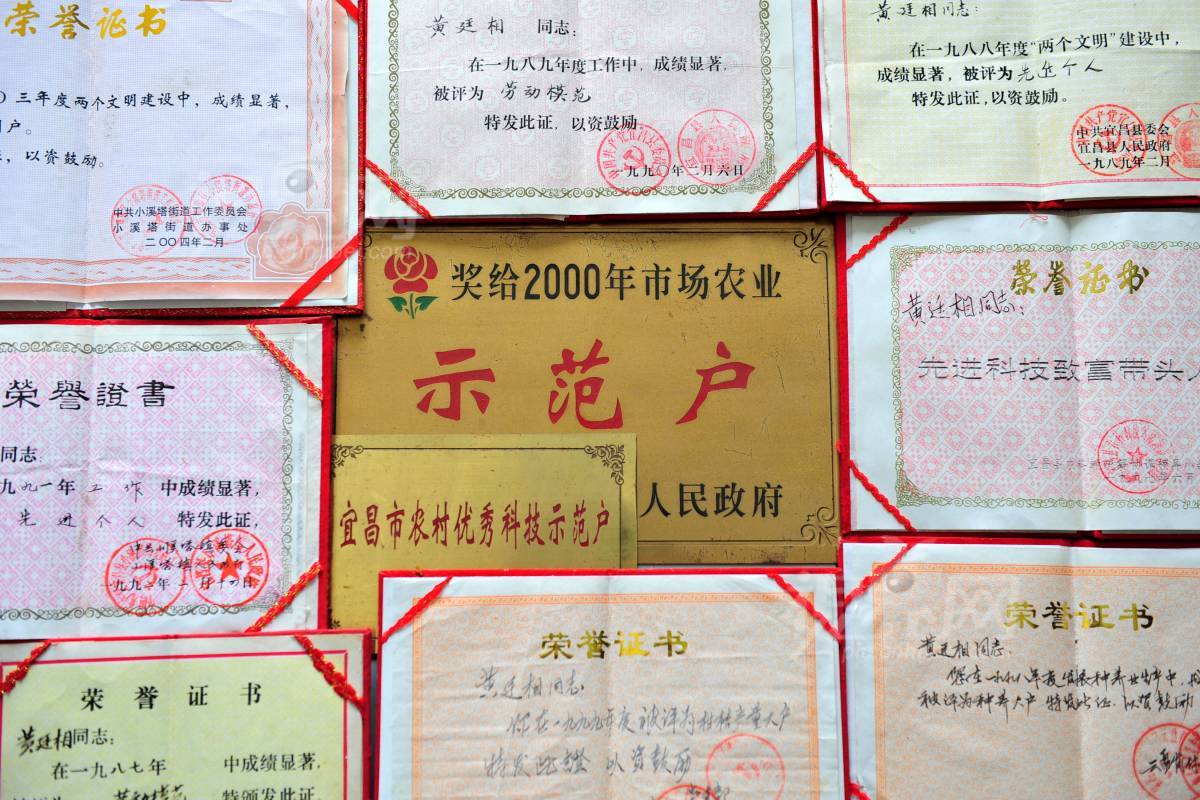 荣誉证书
三年度两个文明建设中，成绩显著，
户。
，以资鼓励。
中共小溪塔街道工作委员会
小溪塔街道办事处
二〇〇四年二月
黄廷相 同志：
在一九八九年度工作中，成绩显著，
被评为 劳动模范
特发此证，以资鼓励
一九九〇年二月六日
黄廷相同志：
在一九八八年度“两个文明”建设中，
成绩显著，被评为先进个人
特发此证，以资鼓励。
中共宜昌县委会
宜昌县人民政府
一九八九年二月
奖给2000年市场农业
示范户
人民政府
宜昌市农村优秀科技示范户
荣誉证书
黄廷相同志：
先进科技致富带头人
榮譽證書
同志
九九一年工作中成绩显著，
先进个人 特发此证，
荣誉证书
黄廷相同志：
在一九八七年 中成绩显著，
劳动模范 特颁发此证，
荣誉证书
黄廷相同志
你在一九九九年度被评为柑桔产量大户
特发此证 以资鼓励
荣誉证书
黄廷相同志
被评为种养大户 特发此证 以资鼓励